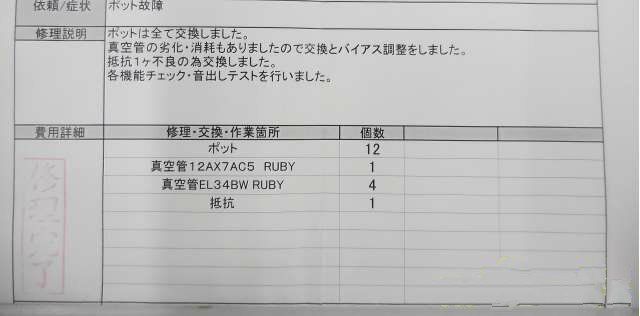 依頼/症状 ポット故障
修理説明 ポットは全て交換しました。
真空管の劣化・消耗もありましたので交換とバイアス調整をしました。
抵抗1ヶ不良の為交換しました。
各機能チェック・音出しテストを行いました。
費用詳細 修理・交換・作業箇所 個数
ポット 12
真空管12AX7AC5 RUBY 1
真空管EL34BW RUBY 4
抵抗 1
修理完了